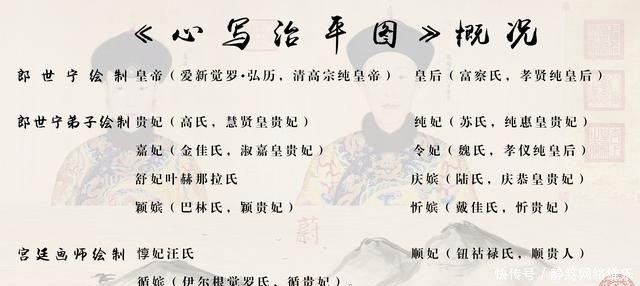 《心写治平图》概况
郎世宁绘制 皇帝（爱新觉罗•弘历，清高宗纯皇帝） 皇后（富察氏，孝贤纯皇后）
郎世宁弟子绘制 贵妃（高氏，慧贤皇贵妃） 纯妃（苏氏，纯惠皇贵妃）
嘉妃（金佳氏，淑嘉皇贵妃） 令妃（魏氏，孝仪纯皇后）
舒妃叶赫那拉氏 庆嫔（陆氏，庆恭皇贵妃）
颖嫔（巴林氏，颖贵妃） 忻嫔（戴佳氏，忻贵妃）
蔚
宫廷画师绘制 惇妃汪氏 顺妃（钮祜禄氏，顺贵人）
循嫔（伊尔根觉罗氏，循贵妃）。
快传号/静笃网络娱乐